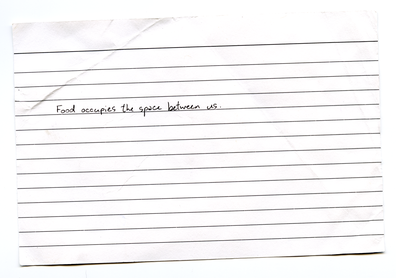 Food occupies the space between us.